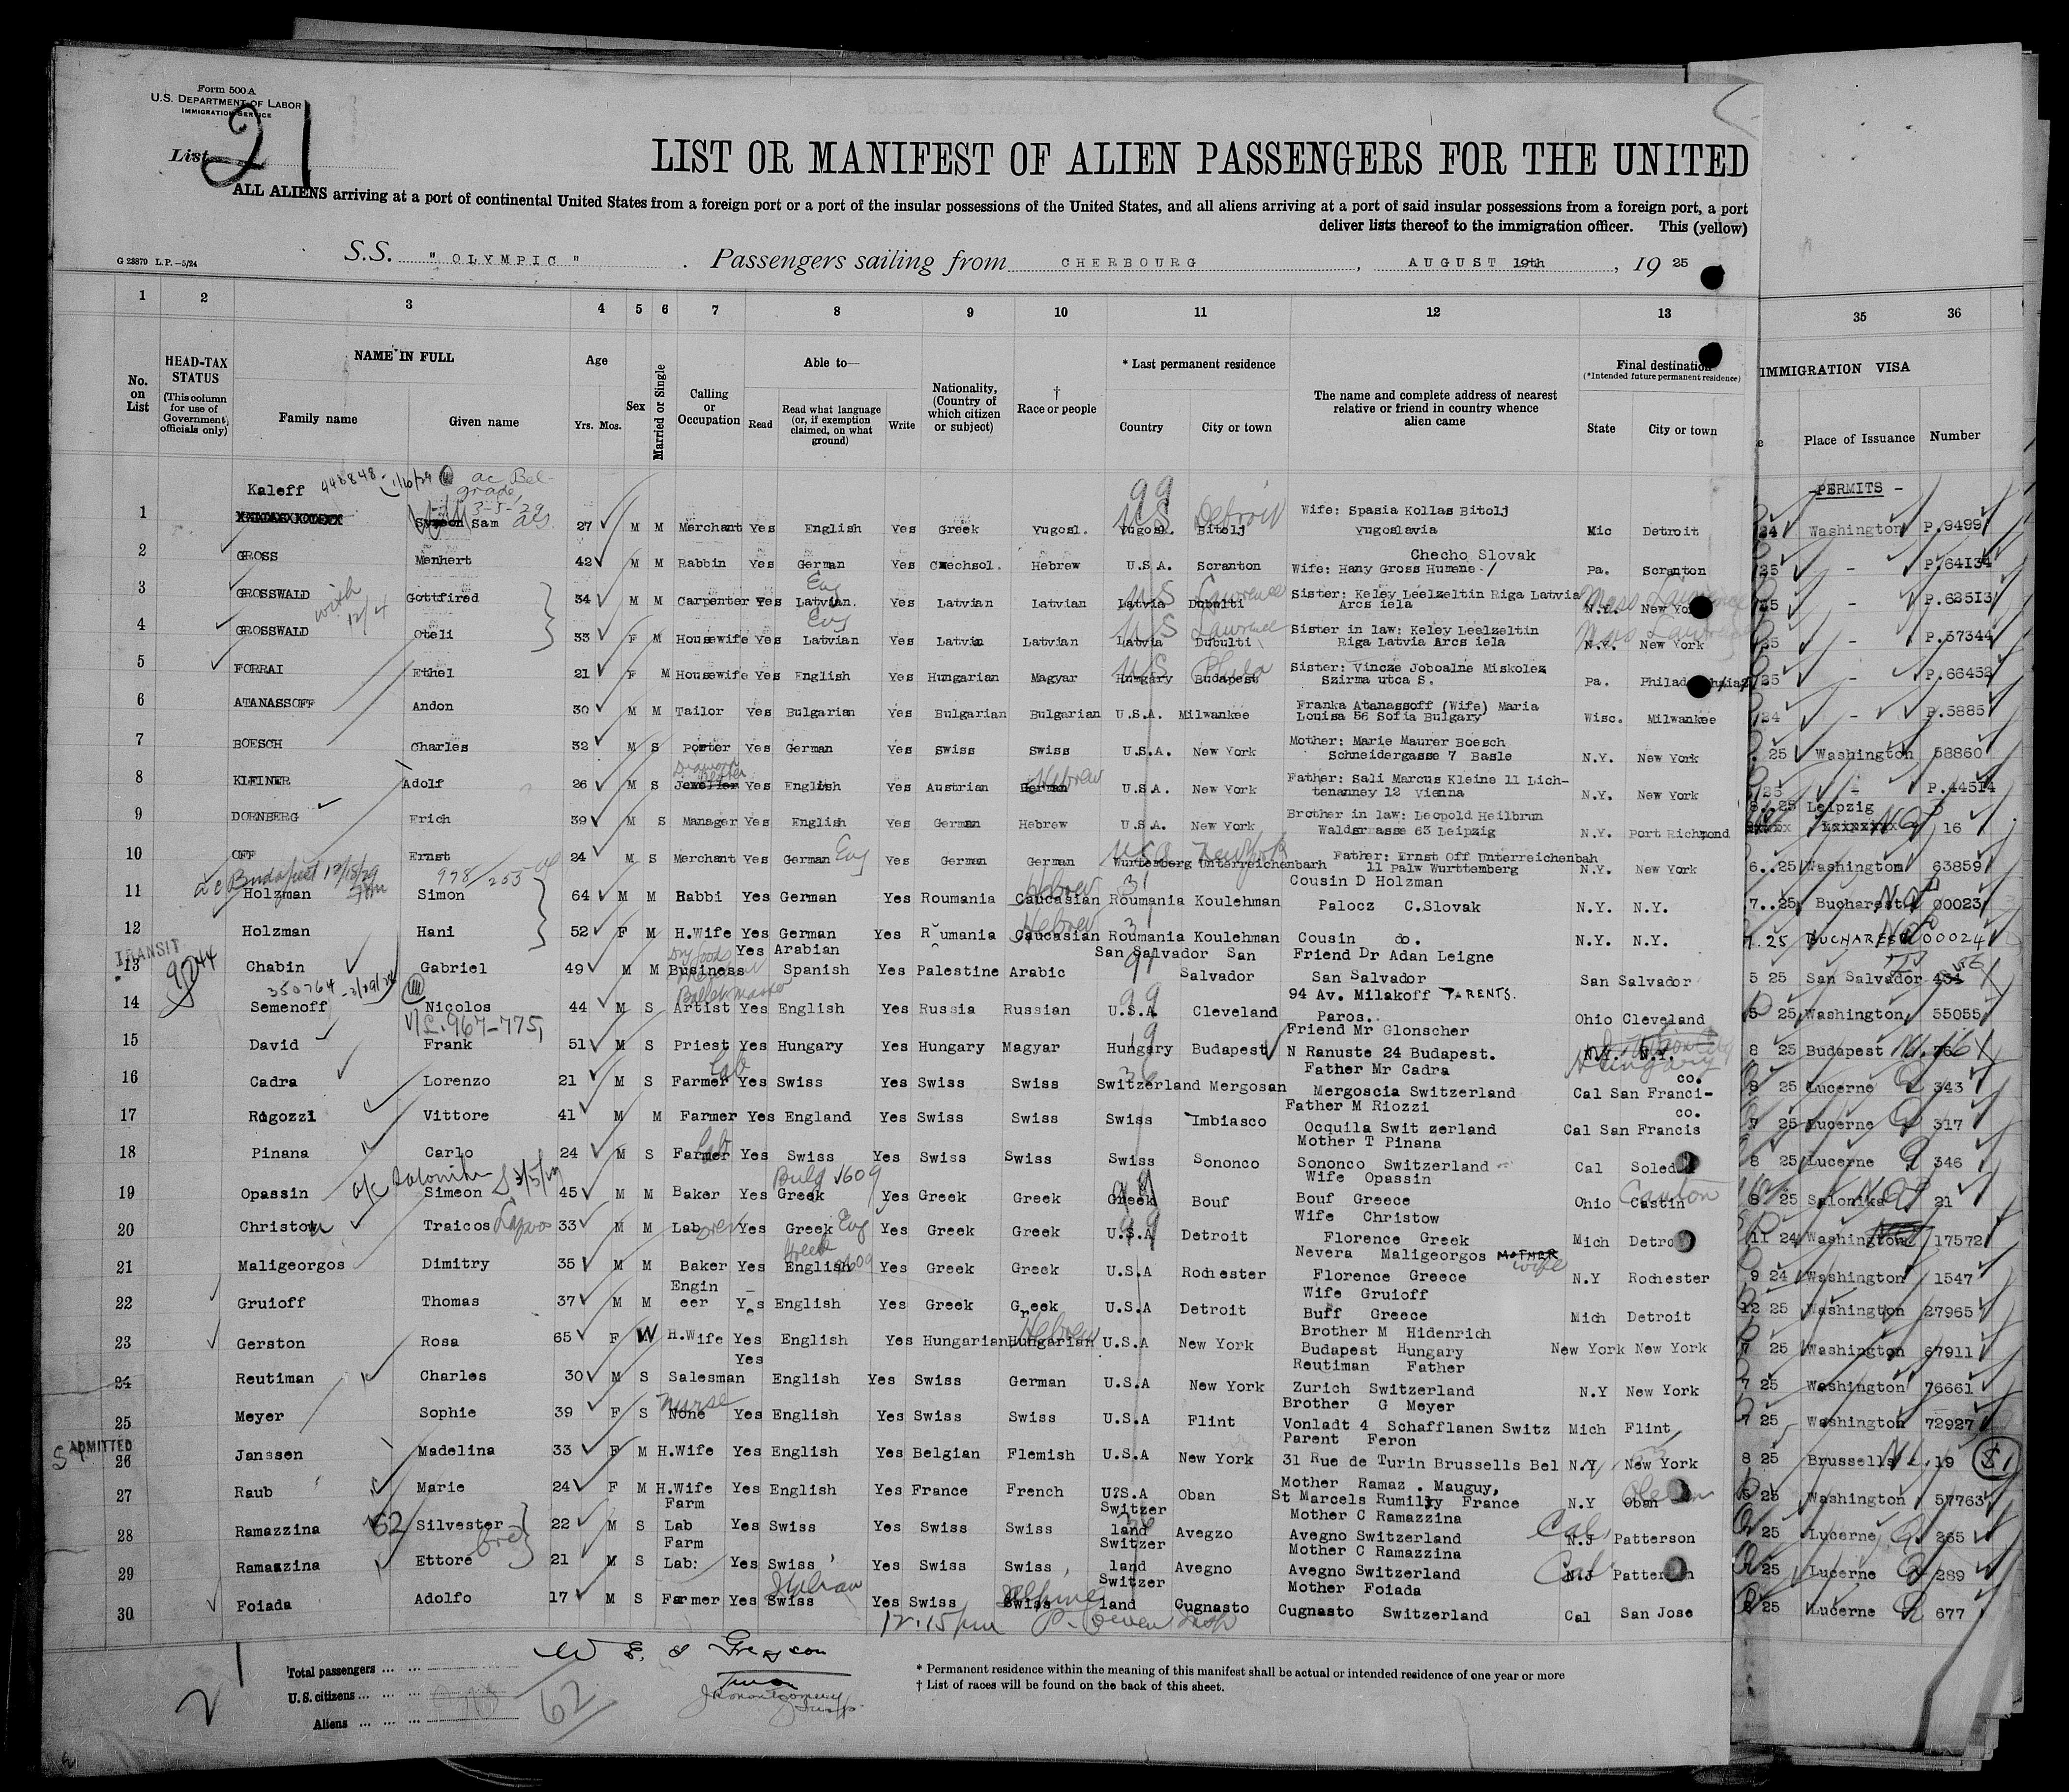 Form 500 A
U.S. DEPARTMENT OF LABOR
IMMIGRATION SERVICE
List 21
LIST OR MANIFEST OF ALIEN PASSENGERS FOR THE UNITED
ALL ALIENS arriving at a port of continental United States from a foreign port or a port of the insular possessions of the United States, and all aliens arriving at a port of said insular possessions from a foreign port, a port
deliver lists thereof to the immigration officer. This (yellow)
G 23879 L.P.—5/24
S.S. " OLYMPIC " . Passengers sailing from CHERBOURG , AUGUST 19th , 19 25
1 2 3 4 5 6 7 8 9 10 11 12 13 35 36
No. on List
HEAD-TAX STATUS (This column for use of Government officials only)
NAME IN FULL
Family name Given name
Age Yrs. Mos.
Sex
Married or Single
Calling or Occupation
Able to—
Read Read what language (or, if exemption claimed, on what ground) Write
Nationality, (Country of which citizen or subject)
† Race or people
* Last permanent residence
Country City or town
The name and complete address of nearest relative or friend in country whence alien came
Final destination (*Intended future permanent residence)
State City or town
IMMIGRATION VISA
Place of Issuance Number
Kaleff 448848 - 1/16/29 ac Belgrade 3-5-29 99 - PERMITS -
1 Sam 27 M M Merchant Yes English Yes Greek Yugosl. Yugosl. US Bitolj Detroit Wife: Spasia Kollas Bitolj Yugoslavia Mic Detroit 24 Washington P.9499
2 GROSS Menhert 42 M M Rabbin Yes German Yes Czechsol. Hebrew U.S.A. Scranton Checho Slovak Wife: Hany Gross Humene Pa. Scranton 25 - P.64134
3 GROSSWALD with 12/4 Gottfired 34 M M Carpenter Yes Latvian. Eng Yes Latvian Latvian Latvia US Dubulti Lawrence Sister: Keley Leelzeltin Riga Latvia Arcs iela N.Y. New York Mass Lawrence 25 - P.62513
4 GROSSWALD Oteli 33 F M Housewife Yes Latvian Eng Yes Latvin Latvian Latvia US Dubulti Lawrence Sister in law: Keley Leelzeltin Riga Latvia Arcs iela N.Y. New York Mass Lawrence 25 - P.57344
5 FORRAI Ethel 21 F M Housewife Yes English Yes Hungarian Magyar Hungary US Budapest Phila Sister: Vincze Joboalne Miskolez Szirma utca S. Pa. Philadelphia 25 - P.66452
6 ATANASSOFF Andon 30 M M Tailor Yes Bulgarian Yes Bulgarian Bulgarian U.S.A. Milwankee Franka Atanassoff (Wife) Maria Louisa 56 Sofia Bulgary Wisc. Milwankee 24 - P.5885
7 BOESCH Charles 32 M S Porter Yes German Yes Swiss Swiss U.S.A. New York Mother: Marie Maurer Boesch Schneidergasse 7 Basle N.Y. New York 25 Washington 58860
8 KLEINER Adolf 26 M S Jeweller Yes English Yes Austrian German Hebrew U.S.A. New York Father: Sali Marcus Kleine 11 Lichtenanney 12 Vienna N.Y. New York 25 - P.44514
9 DORNBERG Erich 39 M S Manager Yes English Yes German Hebrew U.S.A. New York Brother in law: Leopold Heilbrun Waldsrasse 63 Leipzig N.Y. Port Richmond 8..25 Leipzig 16
10 OFF Ernst 24 M S Merchant Yes German Eng Yes German German Wurtemberg Unterreichenbarh USA New York Father: Ernst Off Unterreichenbah 11 Palw Wurttemberg N.Y. New York 6..25 Washington 63859
ac Budapest 12/18/29 978/255
11 Holzman Simon 64 M M Rabbi Yes German Yes Roumania Caucasian Hebrew Roumania Koulehman Cousin D Holzman Palocz C.Slovak N.Y. N.Y. 7..25 Bucharest 00023
12 Holzman Hani 52 F M H.Wife Yes German Yes Rumania Caucasian Hebrew Roumania Koulehman Cousin do. N.Y. N.Y. 7.25 BUCHAREST 00024
TRANSIT
13 Chabin Gabriel 49 M M Business Yes Arabian Spanish Yes Palestine Arabic San Salvador San Salvador Friend Dr Adan Leigne San Salvador San Salvador 5 25 San Salvador
350764 - 3/29/28
14 Semenoff Nicolos 44 M S Artist Ballet master Yes English Yes Russia Russian U.S.A Cleveland 94 Av. Milakoff PARENTS. Paros. Ohio Cleveland 5 25 Washington 55055
V/L. 967-775,
15 David Frank 51 M S Priest Yes Hungary Yes Hungary Magyar Hungary Budapest Friend Mr Glonscher N Ranuste 24 Budapest. N.Y. N.Y. Hungary 8 25 Budapest
16 Cadra Lorenzo 21 M S Farmer Lab Yes Swiss Yes Swiss Swiss Switzerland Mergosan Father Mr Cadra Mergoscia Switzerland Cal San Francico. 8 25 Lucerne 343
17 Rigozzi Vittore 41 M M Farmer Yes England Yes Swiss Swiss Swiss Imbiasco Father M Riozzi Ocquila Swit zerland Cal San Francisco. 7 25 Lucerne 317
18 Pinana Carlo 24 M S Farmer Lab Yes Swiss Yes Swiss Swiss Swiss Sononco Mother T Pinana Sononco Switzerland Cal Soledad 8 25 Lucerne 346
19 Opassin Simeon 45 M M Baker Yes Greek Bulg 1609 Yes Greek Greek Greek Bouf Wife Opassin Bouf Greece Ohio Castin Canton 8 25 Salonika 21
20 Christow Traicos 33 M M Laborer Yes Greek Eng Yes Greek Greek U.S.A Detroit Wife Christow Florence Greek Mich Detroit 11 24 Washington 17572
21 Maligeorgos Dimitry 35 M M Baker Yes English Greek Yes Greek Greek U.S.A Rochester Nevera Maligeorgos MOTHER wife Florence Greece N.Y Rochester 9 24 Washington 1547
22 Gruioff Thomas 37 M M Engineer Yes English Yes Greek Greek U.S.A Detroit Wife Gruioff Buff Greece Mich Detroit 12 25 Washington 27965
23 Gerston Rosa 65 F W H.Wife Yes English Yes Hungarian Hungarian Hebrew U.S.A New York Brother M Hidenrich Budapest Hungary New York New York 7 25 Washington 67911
24 Reutiman Charles 30 M S Salesman Yes English Yes Swiss German U.S.A New York Reutiman Father Zurich Switzerland N.Y New York 7 25 Washington 76661
25 Meyer Sophie 39 F S None Nurse Yes English Yes Swiss Swiss U.S.A Flint Brother G Meyer Vonladt 4 Schafflanen Switz Mich Flint 7 25 Washington 72927
ADMITTED
26 Janssen Madelina 33 F M H.Wife Yes English Yes Belgian Flemish U.S.A New York Parent Feron 31 Rue de Turin Brussells Bel N.Y New York 8 25 Brussells 19
27 Raub Marie 24 F M H.Wife Yes English Yes France French U.S.A Oban Mother Ramaz . Mauguy, St Marcels Rumilly France N.Y Oban 5 25 Washington 57763
28 Ramazzina Silvester 22 M S Farm Lab Yes Swiss Yes Swiss Swiss Switzerland Avegzo Mother C Ramazzina Avegno Switzerland N.J Cal Patterson 25 Lucerne 265
29 Ramazzina Ettore 21 M S Farm Lab: Yes Swiss Yes Swiss Swiss Switzerland Avegno Mother C Ramazzina Avegno Switzerland N.J Cal Patterson 25 Lucerne 289
30 Foiada Adolfo 17 M S Farmer Yes Swiss Italian Yes Swiss Swiss Switzerland Cugnasto Mother Foiada Cugnasto Switzerland Cal San Jose 25 Lucerne 677
12.15 pm
Total passengers ... ...
U.S. citizens ... ... ...
Aliens ... ... ...
62
* Permanent residence within the meaning of this manifest shall be actual or intended residence of one year or more
† List of races will be found on the back of this sheet.